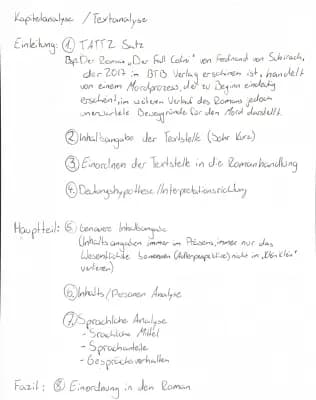 Kapitelanalyse / Textanalyse
Einleitung: ① TATTZ Satz
Bsp: Der Roman „Der Fall Collini" von Ferdinand von Schirach,
der 2017 im BTB Verlag erschienen ist, handelt
von einem Mordprozess, der zu Beginn eindeutig
erscheint, im weiteren Verlauf des Romans jedoch
unerwartete Beweggründe für den Mord darstellt.
② Inhaltsangabe der Textstelle (Sehr Kurz)
③ Einordnen der Textstelle in die Romanhandlung
④ Deutungshypothese/Interpretationsrichtung
Hauptteil: ⑤ Genauere Inhaltsangabe
(Inhaltsangaben immer im Präsens, immer nur das
Wesentliche benennen (Außenperspektive) nicht in „
verlieren)
⑥ Inhalts/Personen Analyse
⑦ Sprachliche Analyse
- Sprachliche Mittel
- Sprachanteile
- Gesprächsverhalten
Fazit: ⑧ Einordnung in den Roman